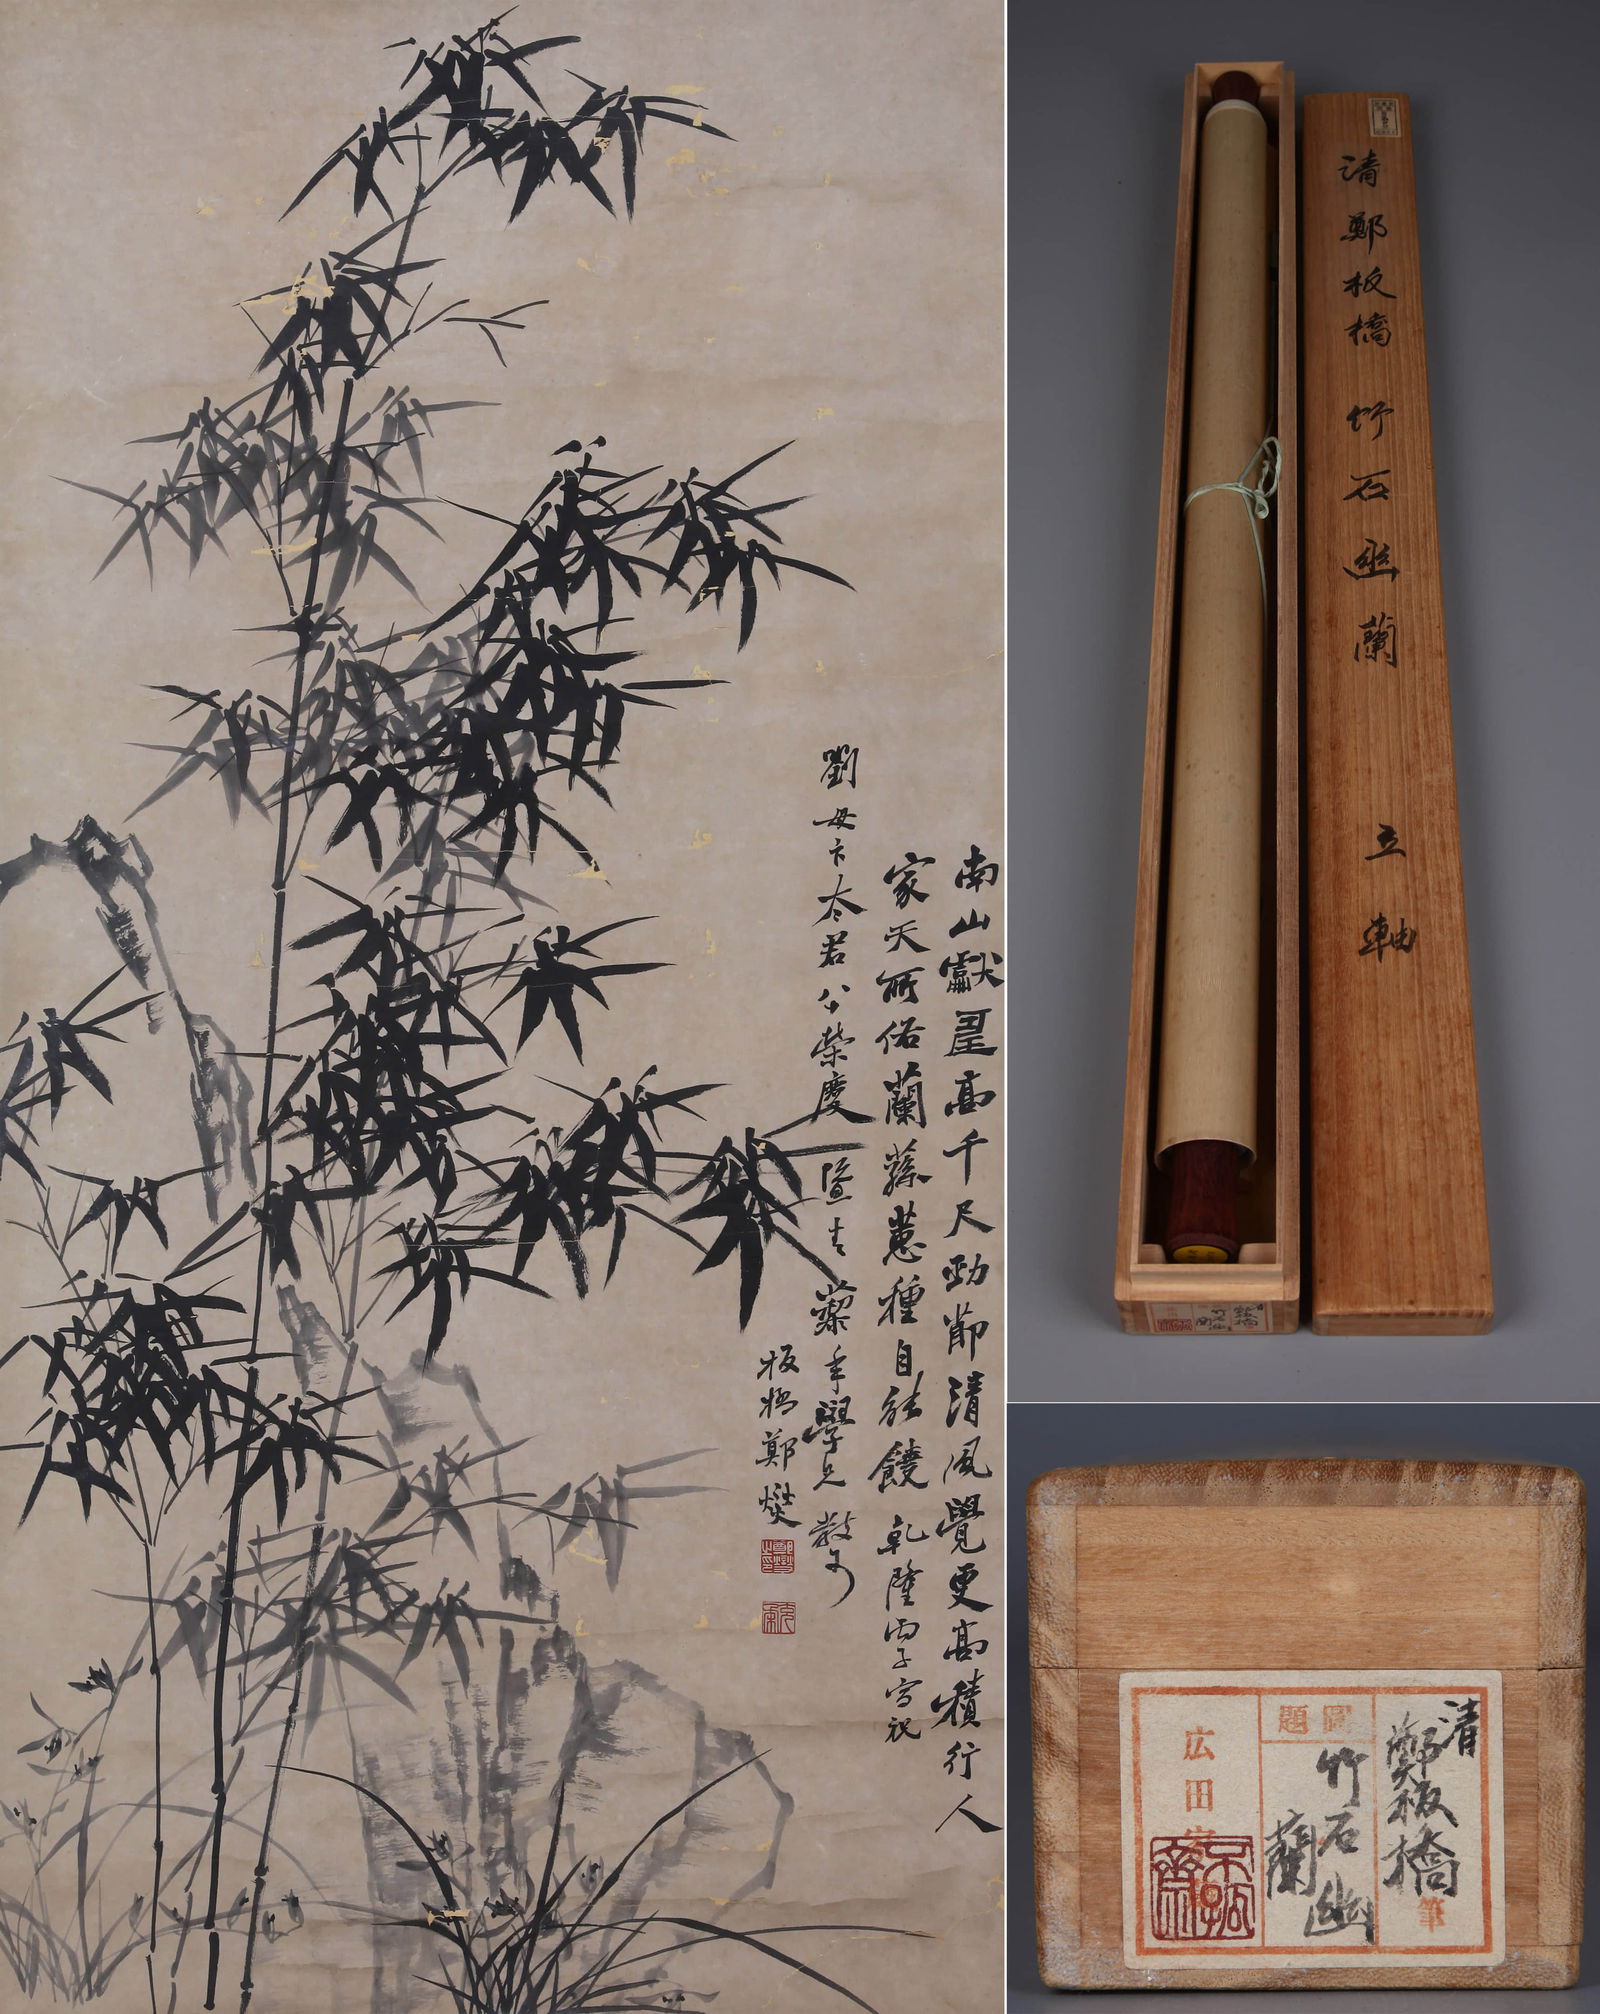 南山獻壽高千尺勁節清風覺更高積行人
家天所佑蘭蓀蕙種自能饒 乾隆丙子寫祝
劉母卞太君八榮慶 暨青藜年學兄 教可
板橋鄭燮
清鄭板橋竹石幽蘭 立軸
清
鄭板橋
筆
圖題
竹石幽
蘭
広田
不孤齋